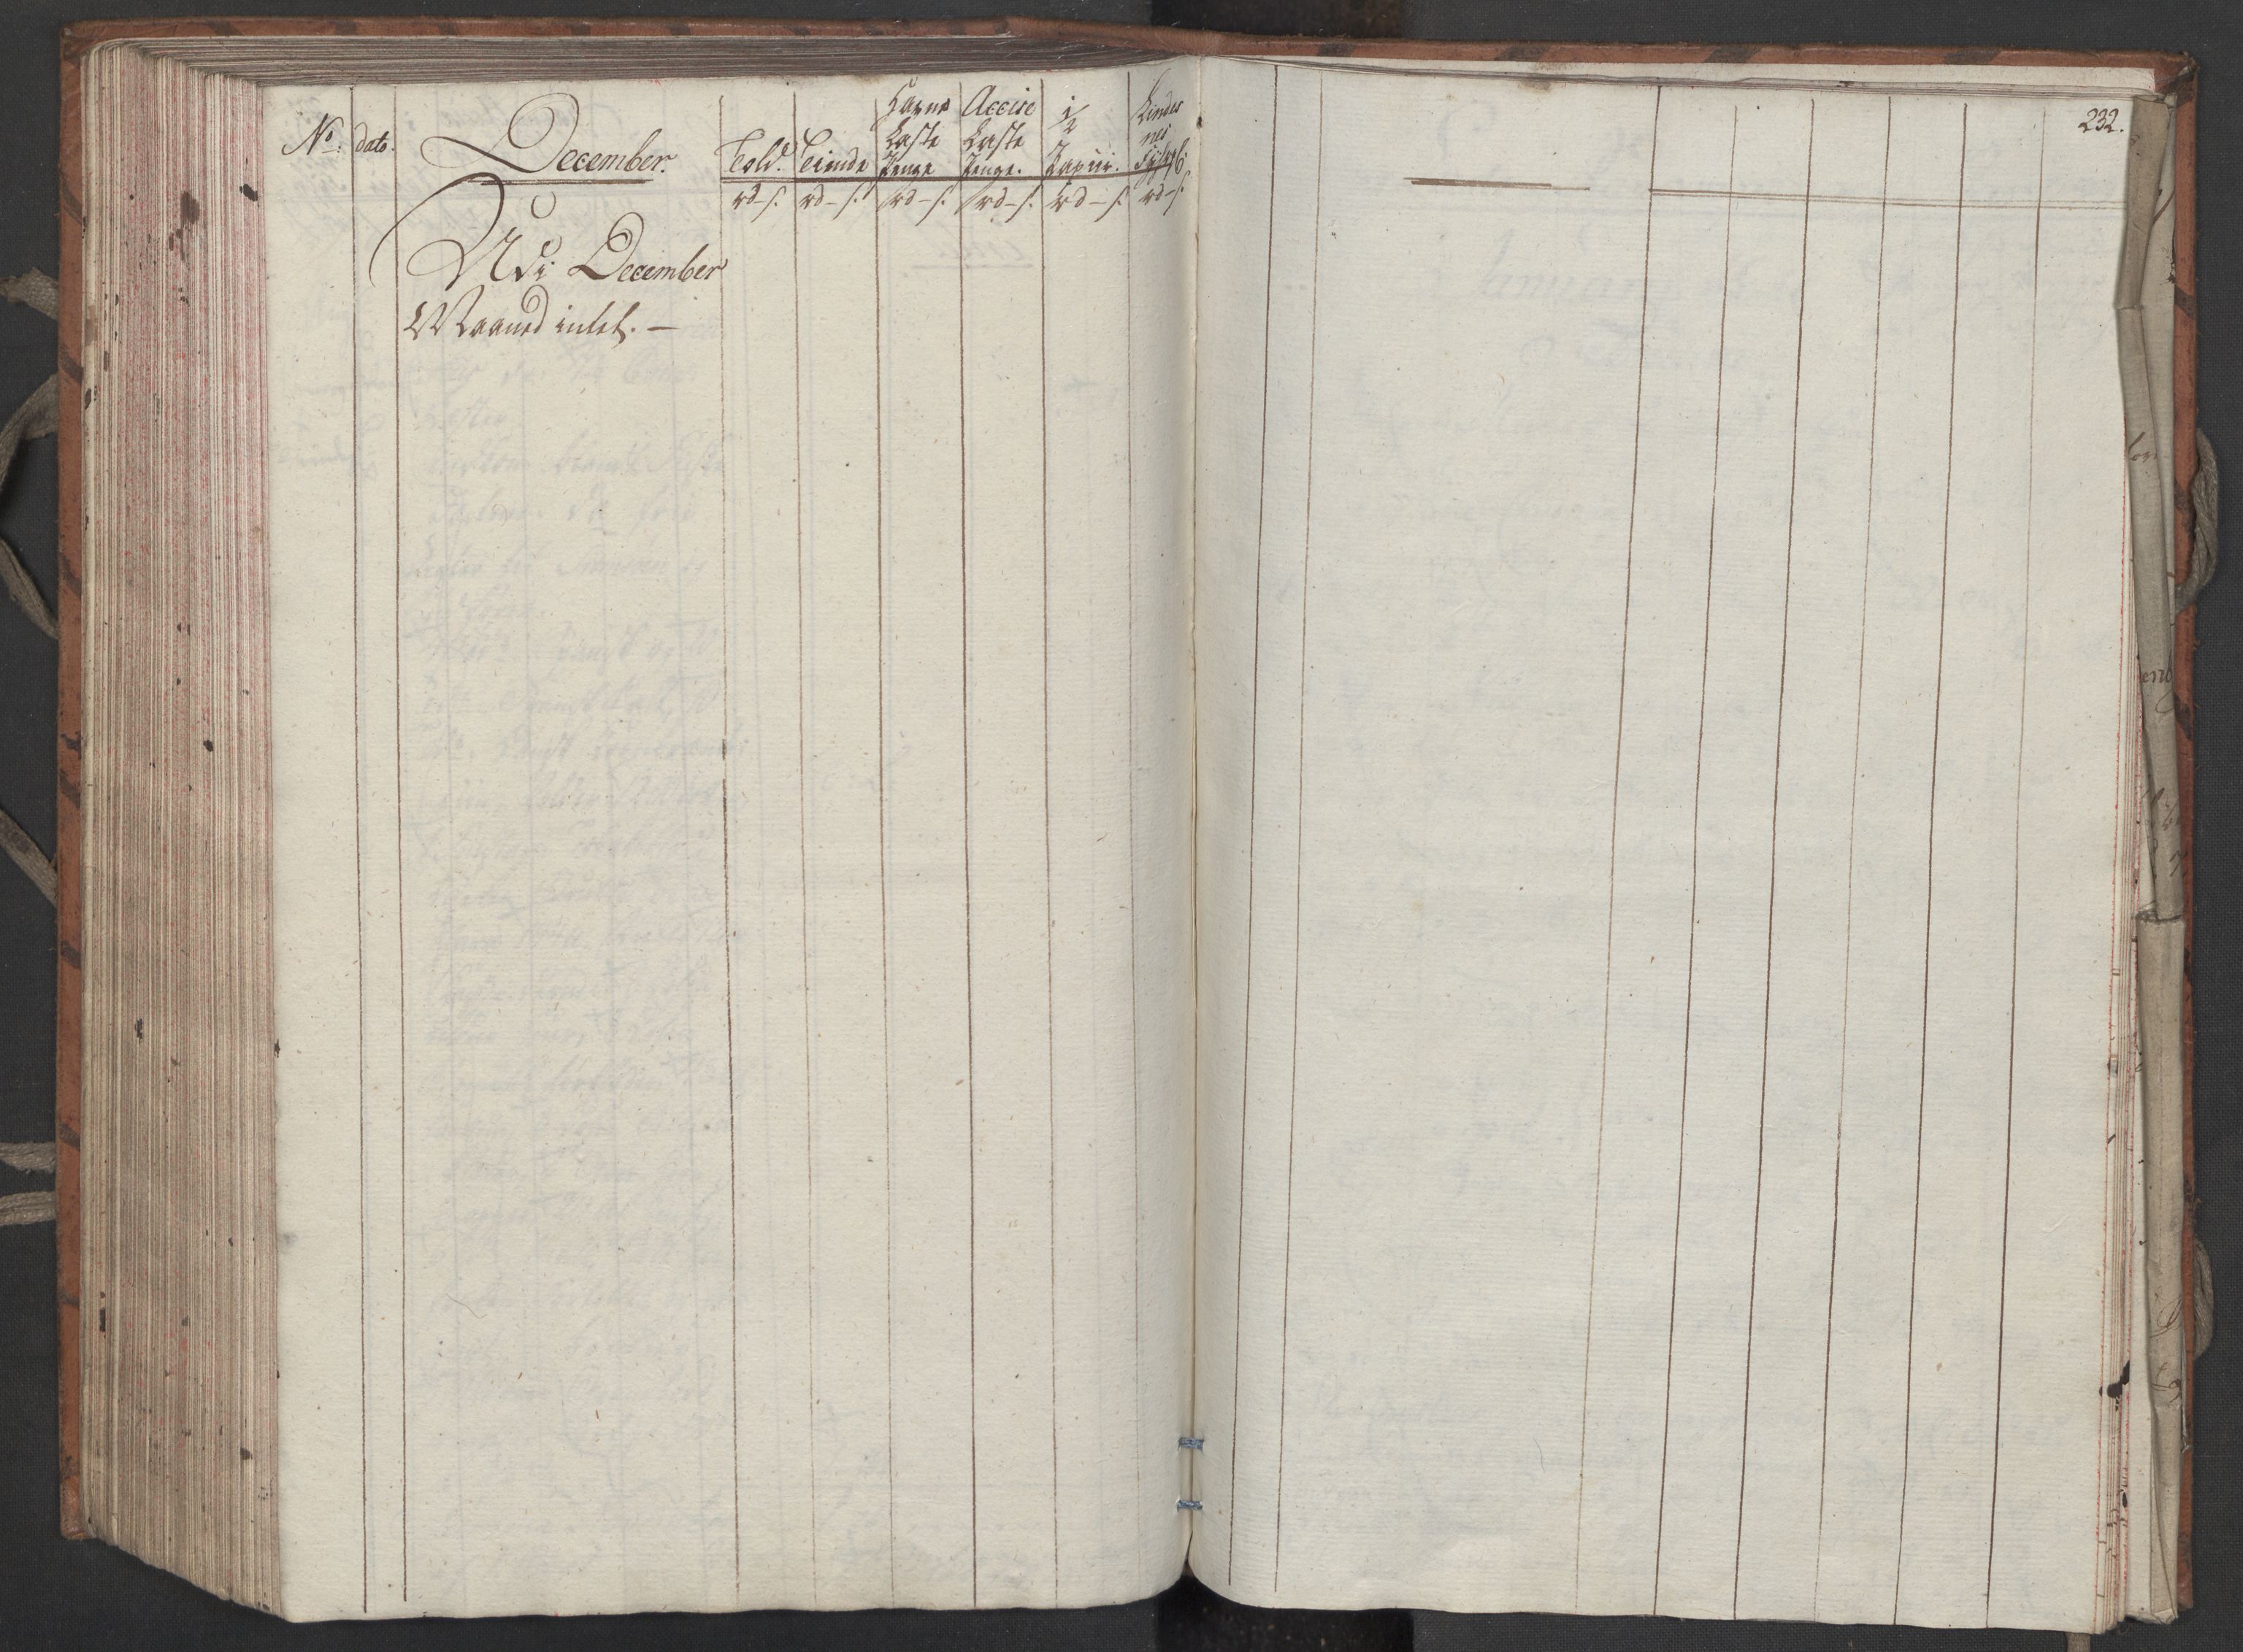 No: dato. December. Told. Tiende Havne Laste Penge Accise Laste Penge. 1/2 Papiir.
rd - s. rd - s. rd - s. rd - s. rd - s. rd - s.
Udi December
Maaned intet. —
232.